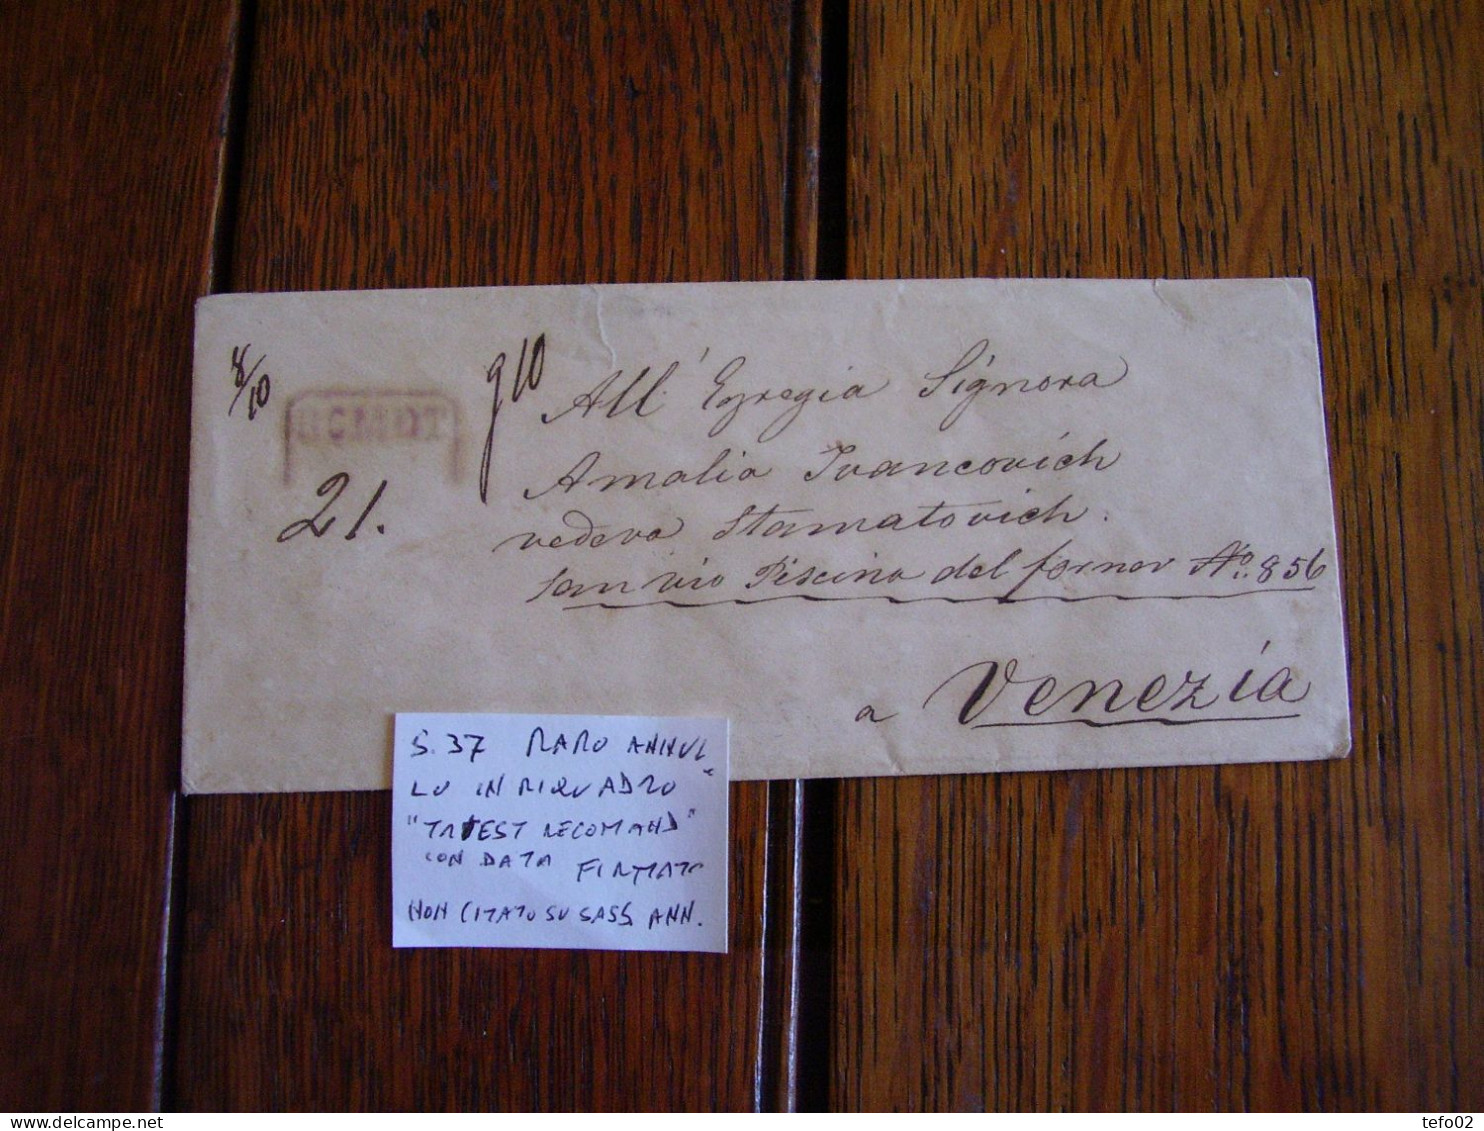 8/10
RCMDT
910
21.
All' Egregia Signora
Amalia Ivancovich
vedova Stamatovich.
San vio Piscina del forner No. 856
a Venezia
S. 37 RARO ANNUL
LO IN RIQUADRO
"TRIEST RECOMAND"
CON DATA FIRMATO
NON CITATO SU SASS ANN.
tefo02